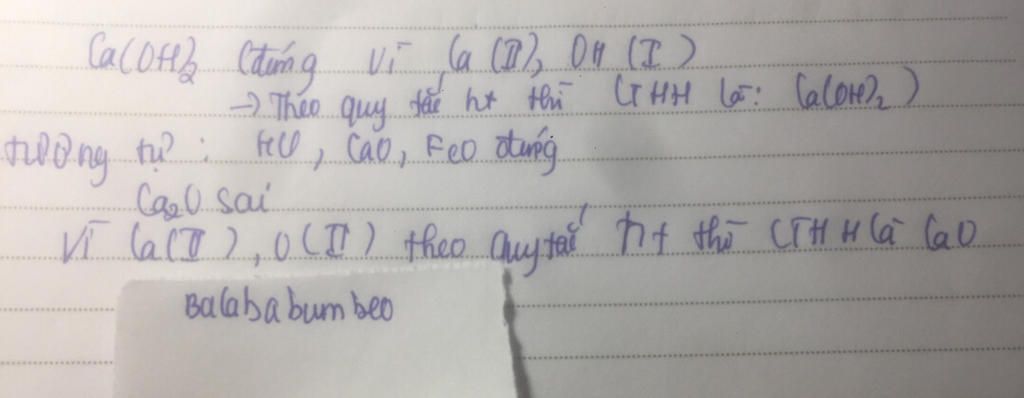 Ca(OH)2 (đúng vì Ca (II), OH (I)
→ Theo quy tắc ht thì CTHH là: Ca(OH)2)
tương tự: HCl, CaO, FeO đúng
Ca2O sai
Vì Ca(II), O(II) theo quy tắc ht thì CTHH là CaO
Balababumbeo